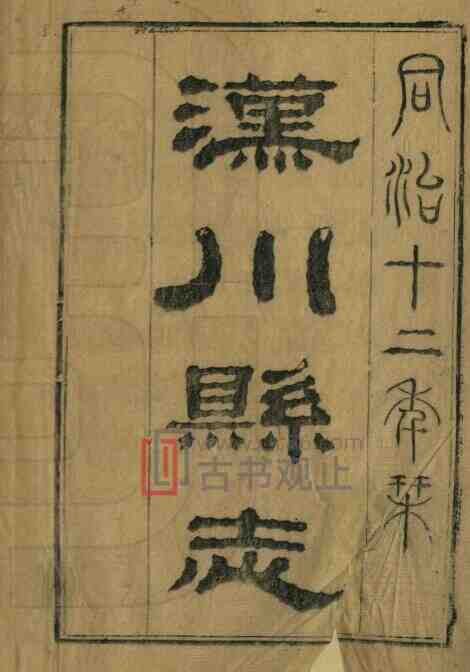 同治十二年栞
漢川縣志
古书观止